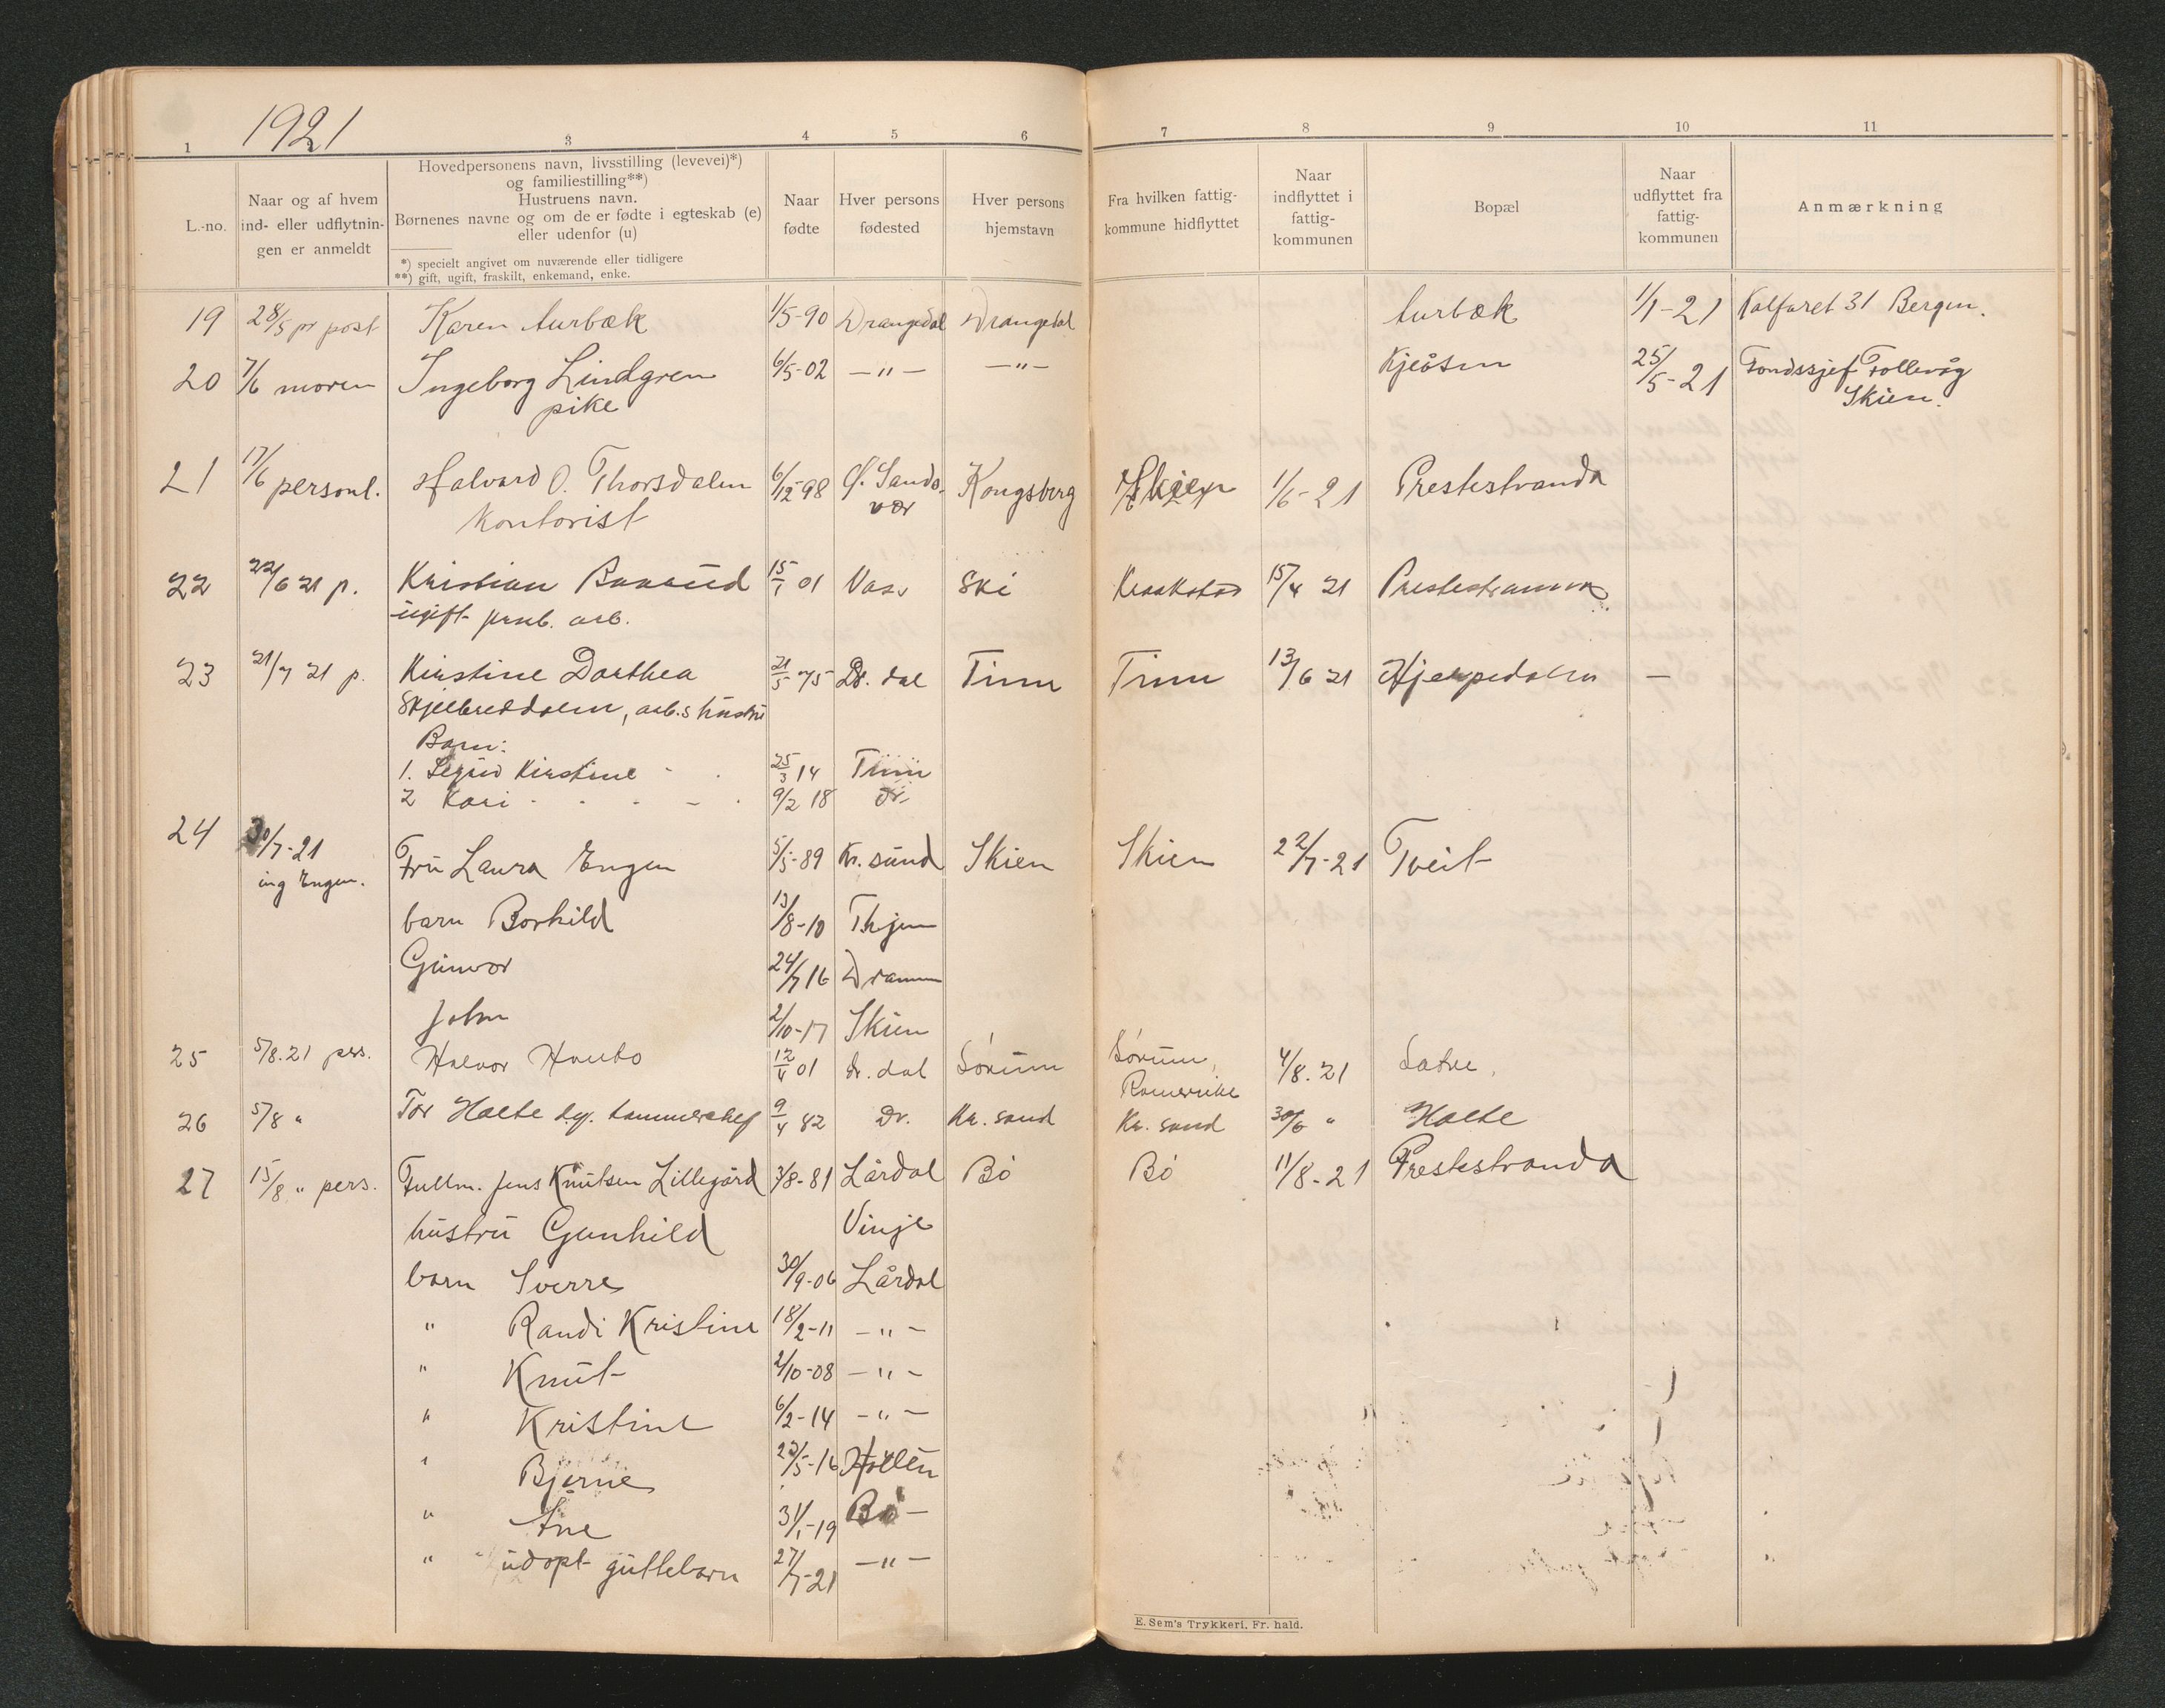 1921
1 3 4 5 6 7 8 9 10 11
L.-no.
Naar og af hvem
ind- eller udflytnin-
gen er anmeldt
Hovedpersonens navn, livsstilling (levevei)*)
og familiestilling**)
Hustruens navn.
Børnenes navne og om de er fødte i egteskab (e)
eller udenfor (u)
*) specielt angivet om nuværende eller tidligere
**) gift, ugift, fraskilt, enkemand, enke.
Naar
fødte
Hver persons
fødested
Hver persons
hjemstavn
Fra hvilken fattig-
kommune hidflyttet
Naar
indflyttet i
fattig-
kommunen
Bopæl
Naar
udflyttet fra
fattig-
kommunen
Anmærkning
19 28/5 pr post Karen Aurbæk 1/5-90 Drangedal Drangedal Aurbæk 1/1-21 Kalfaret 31 Bergen.
20 7/6 moren Ingeborg Lindgren 6/5-02 —"— —"— Kjeåsen 25/5-21 Fondssjef Follevåg
pike Skien.
21 17/6 personl. Halvard O. Thorsdalen 6/12-98 Ø. Sands- Kongsberg Skien 1/6-21 Prestestranda
Kontorist vær
22 22/6 21 p. Kristian 15/1 01 Ski Kraakstad 15/4 21 Prestestranda
ugift arb.
23 21/7 21 p. Kirstine Dorthea 21/5 75 Dr. dal Tinn Tinn 13/6 21 —
Skjelbreddalen, arb.s hustru
Barn:
1. Sigrid Kirstine 25/3 14 Tinn
2 Kari 9/2 18 Dr.
24 30/7-21 Fru Laura Engen 5/5-89 Kr. sund Skien Skien 22/7-21 Tveit
ing Engen.
barn Borhild 13/8-10
Gunvor 24/7 16 Dramm
John 2/10-17 Skien
25 5/8.21 pers. Halvor 12/4 01 Dr. dal Sørum Sørum, 4/8.21
Romerike
26 5/8 " Tor Holte tømmerskj 9/4 82 Dr. Kr. sand Kr. sand 30/6 " Holte
27 15/8 " pers. Fullm. Jens Knutsen Lillegård 3/8-81 Lårdal Bø Bø 11/8-21 Prestestranda
hustru Gunhild Vinje
barn Sverre 30/9-06 Lårdal
" Randi Kristine 18/2-11 —"—
" Knut 2/10-08 —"—
" Kristine 6/2-14 —"—
" Bjarne 23/5-16 Hollen
" Åne 31/1-19 Bø—
" udøpt guttebarn 27/7-21 —"—
E. Sem's Trykkeri, Fr. hald.